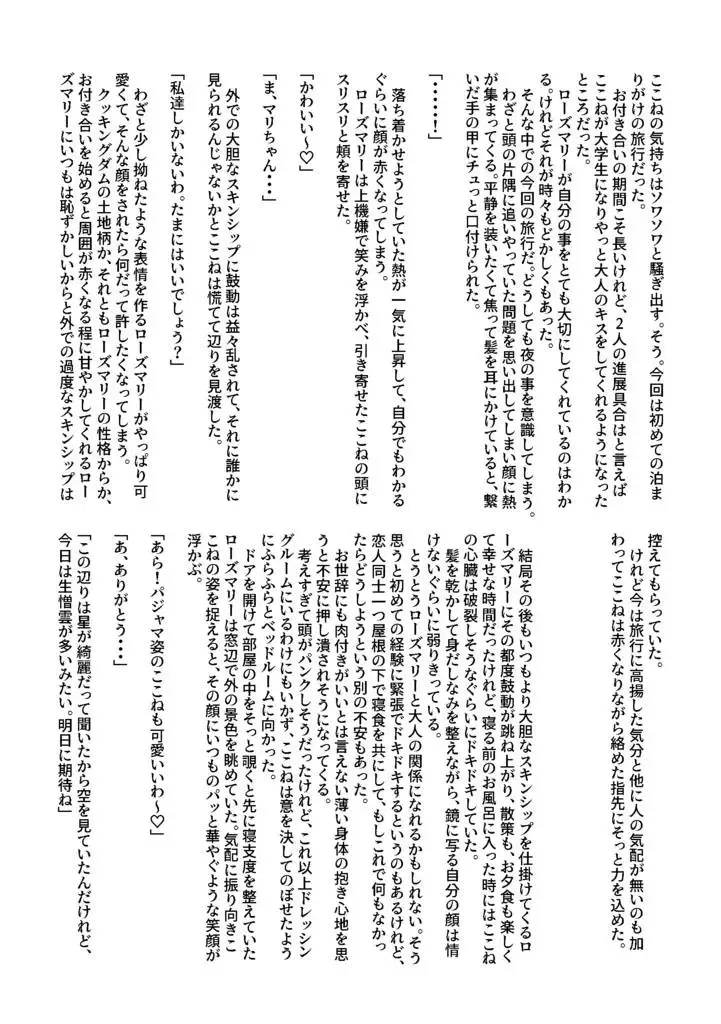 ここねの気持ちはソワソワと騒ぎ出す。そう。今回は初めての泊ま
りがけの旅行だった。
お付き合いの期間こそ長いけれど、2人の進展具合はと言えば
ここねが大学生になりやっと大人のキスをしてくれるようになった
ところだった。
ローズマリーが自分の事をとても大切にしてくれているのはわか
る。けれどそれが時々もどかしくもあった。
そんな中での今回の旅行だ。どうしても夜の事を意識してしまう。
わざと頭の片隅に追いやっていた問題を思い出してしまい顔に熱
が集まってくる。平静を装いたくて焦って髪を耳にかけていると、繋
いだ手の甲にチュっと口付けられた。
「・・・・・・！」
落ち着かせようとしていた熱が一気に上昇して、自分でもわかる
ぐらいに顔が赤くなってしまう。
ローズマリーは上機嫌で笑みを浮かべ、引き寄せたここねの頭に
スリスリと頬を寄せた。
「かわいい〜♡」
「ま、マリちゃん・・・」
外での大胆なスキンシップに鼓動は益々乱されて、それに誰かに
見られるんじゃないかとここねは慌てて辺りを見渡した。
「私達しかいないわ。たまにはいいでしょう？」
わざと少し拗ねたような表情を作るローズマリーがやっぱり可
愛くて、そんな顔をされたら何だって許したくなってしまう。
クッキングダムの土地柄か、それともローズマリーの性格からか、
お付き合いを始めると周囲が赤くなる程に甘やかしてくれるロー
ズマリーにいつもは恥ずかしいからと外での過度なスキンシップは
控えてもらっていた。
けれど今は旅行に高揚した気分と他に人の気配が無いのも加
わってここねは赤くなりながら絡めた指先にそっと力を込めた。
結局その後もいつもより大胆なスキンシップを仕掛けてくるロ
ーズマリーにその都度鼓動が跳ね上がり、散策も、お夕食も楽しく
て幸せな時間だったけれど、寝る前のお風呂に入った時にはここね
の心臓は破裂しそうなぐらいにドキドキしていた。
髪を乾かして身だしなみを整えながら、鏡に写る自分の顔は情
けないぐらいに弱りきっている。
とうとうローズマリーと大人の関係になれるかもしれない。そう
思うと初めての経験に緊張でドキドキするというのもあるけれど、
恋人同士一つ屋根の下で寝食を共にして、もしこれで何もなかっ
たらどうしようという別の不安もあった。
お世辞にも肉付きがいいとは言えない薄い身体の抱き心地を思
うと不安に押し潰されそうになってくる。
考えすぎて頭がパンクしそうだったけれど、これ以上ドレッシン
グルームにいるわけにもいかず、ここねは意を決してのぼせたよう
にふらふらとベッドルームに向かった。
ドアを開けて部屋の中をそっと覗くと先に寝支度を整えていた
ローズマリーは窓辺で外の景色を眺めていた。気配に振り向きこ
こねの姿を捉えると、その顔にいつものパッと華やぐような笑顔が
浮かぶ。
「あら！パジャマ姿のここねも可愛いいわ〜♡」
「あ、ありがとう・・・」
「この辺りは星が綺麗だって聞いたから空を見ていたんだけれど、
今日は生憎雲が多いみたい。明日に期待ね」